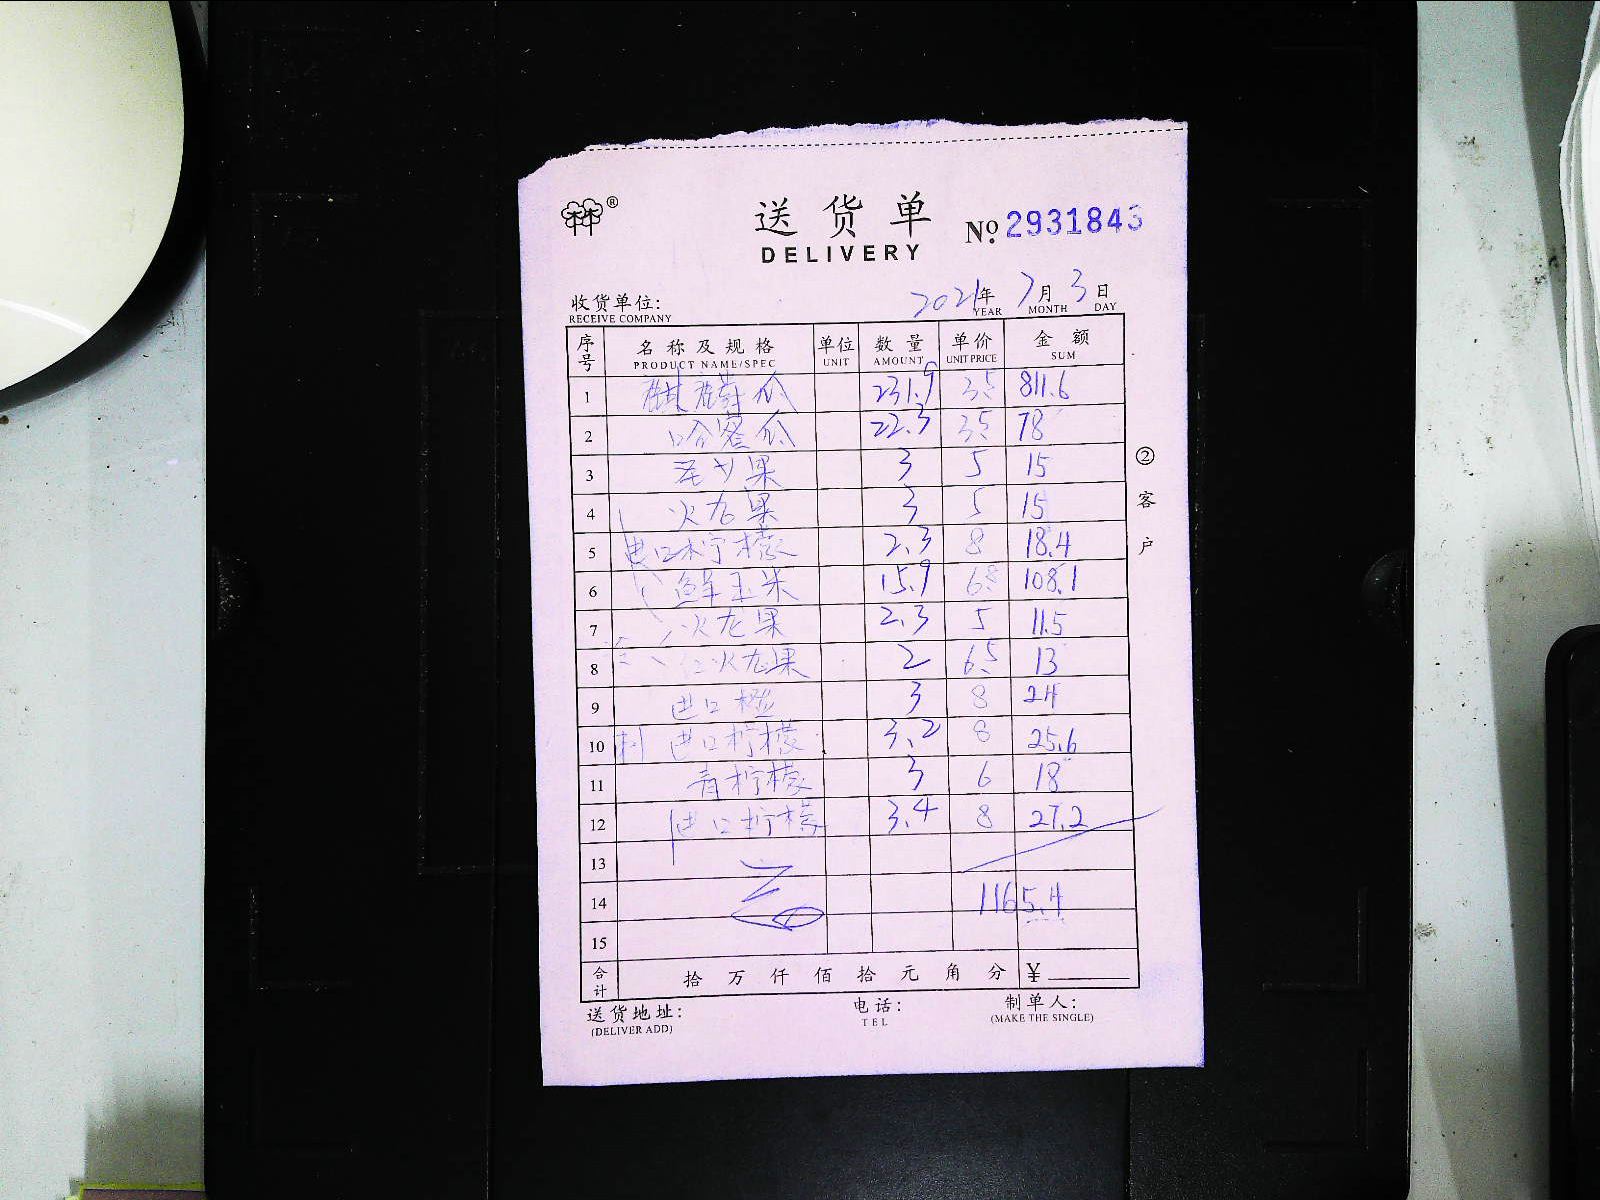 ®
送货单
DELIVERY
№ 2931843
收货单位: 2021年 7月 3日
RECEIVE COMPANY YEAR MONTH DAY
序号 名称及规格 单位 数量 单价 金额
PRODUCT NAME/SPEC UNIT AMOUNT UNIT PRICE SUM
1 麒麟瓜 231.9 3.5 811.6
2 哈密瓜 22.3 3.5 78
3 果 3 5 15
4 火龙果 3 5 15
5 进口柠檬 2.3 8 18.4
6 鲜玉米 15.9 6.8 108.1
7 火龙果 2.3 5 11.5
8 红火龙果 2 6.5 13
9 进口橙 3 8 24
10 进口柠檬 3.2 8 25.6
11 青柠檬 3 6 18
12 进口柠檬 3.4 8 27.2
13
14 1165.4
15
合计 拾 万 仟 佰 拾 元 角 分 ¥
送货地址: 电话: 制单人:
(DELIVER ADD) TEL (MAKE THE SINGLE)
②客户